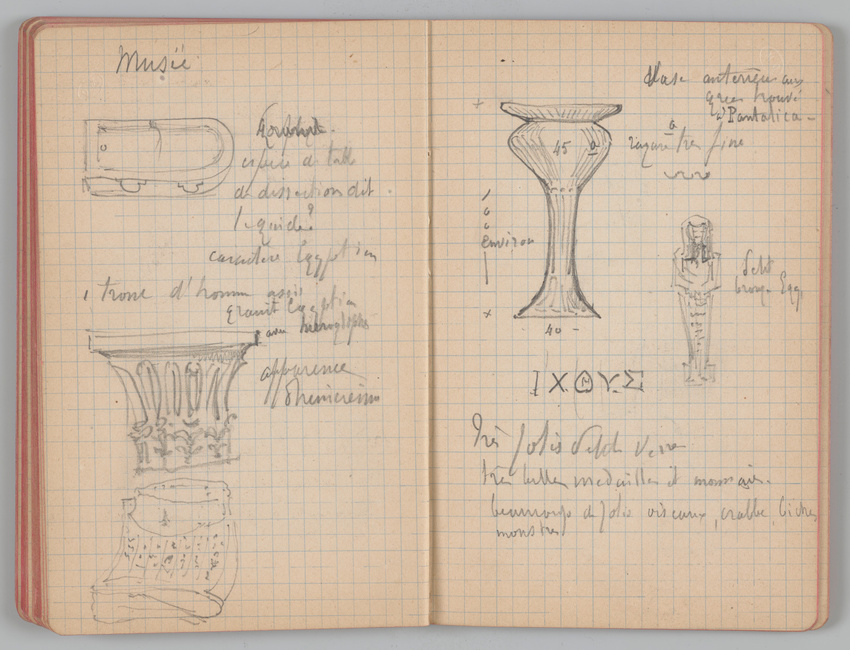 Musée
espèce de table
de dissection dit
liquide?
caractère Egyptien
1 tronc d'homme assis
granit Egyptien
avec hieroglyphe
apparence
Phénicienne
Vase anterieur aux
grecs trouvé
à Pantalica -
a
rayure très fine
45 a
environ
40 -
Petit
bronze Egy.
ΙΧΘΥΣ
Très jolis petits verre
très belles medailles et monnaie.
beaucoup de jolis oiseaux, crabbe,
monstres